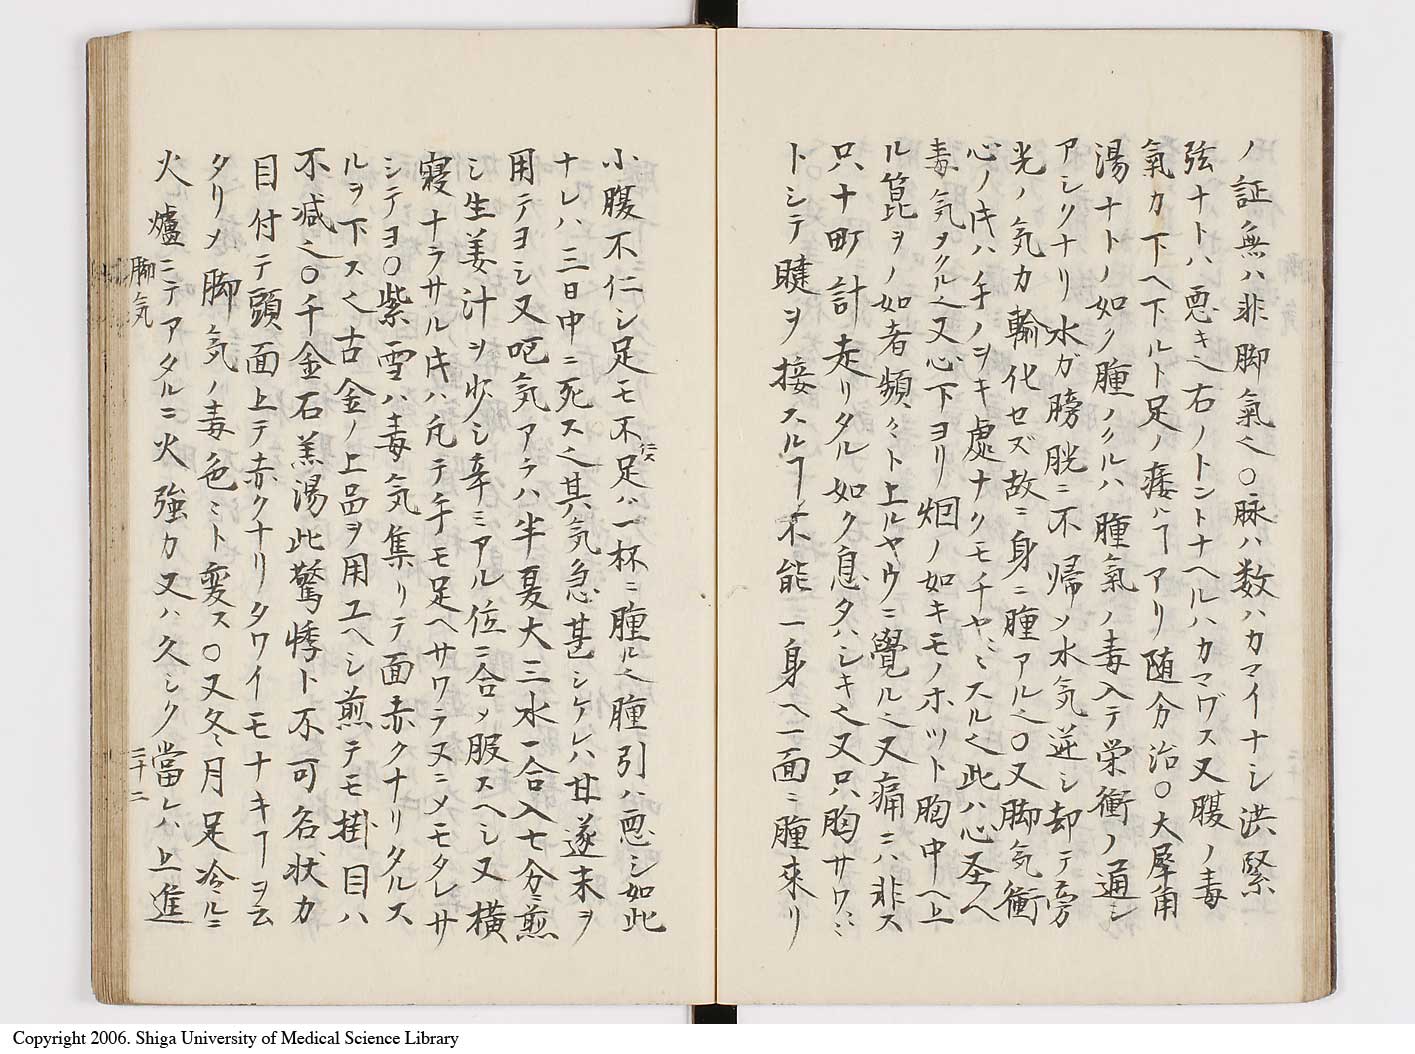 ノ証無ハ非脚氣也〇脉ハ数ハカマイナシ洪緊
弦ナトハ悪キ也右ノトントナヘルハカマワヌ又腹ノ毒
氣カ下ヘ下ルト足ノ痿ハヿアリ随分治〇大犀角
湯ナトノ如ク腫ノクルハ腫氣ノ毒入テ栄衛ノ通シ
アシクナリ水ガ膀胱ニ不帰ソ水気逆シ却テ旁
光ノ気カ輪化セズ故ニ身ニ腫アル也〇又脚気衝
心ノ片ハ手ノヲキ處ナクモチヤミスル也此ハ心圣ヘ
毒気ヲクル也又心下ヨリ烟ノ如キモノホツト胸中ヘ上
ル箟ヲノ如者頻々ト上ルヤウニ覺ル也又痛ニハ非ス
只十町計走リタル如ク息タハシキ也又只胸サワミ
トシテ睫ヲ接スルヿ不能一身ヘ一面ニ腫來リ
小腹不仁シ足モ不足バ一杯ニ腫ル也腫引ハ悪シ如此
ナレハ三日中ニ死ス也其気急甚シケレハ甘遂末ヲ
用テヨシ又呃気アラハ半夏大三水一合入七分ニ煎
シ生姜汁ヲ少シ辛ミアル位ニ合メ服スヘシ又横
寝ナラサル片ハ凭テ手モ足ヘサワラヌニメモタレサ
シテヨ〇紫雪ハ毒気集リテ面赤クナリタルス
ルヲ下ス也古金ノ上品ヲ用ユヘシ煎テモ掛目ハ
不减也〇千金石羔湯此驚悸ト不可名状カ
目付テ頭面上テ赤クナリタワイモナキヿヲ云
タリメ脚気ノ毒色ミト変ス〇又冬月足冷ルニ
火爐ニテアタルニ火強カ又ハ久シク當レハ上進
脚気
二十二